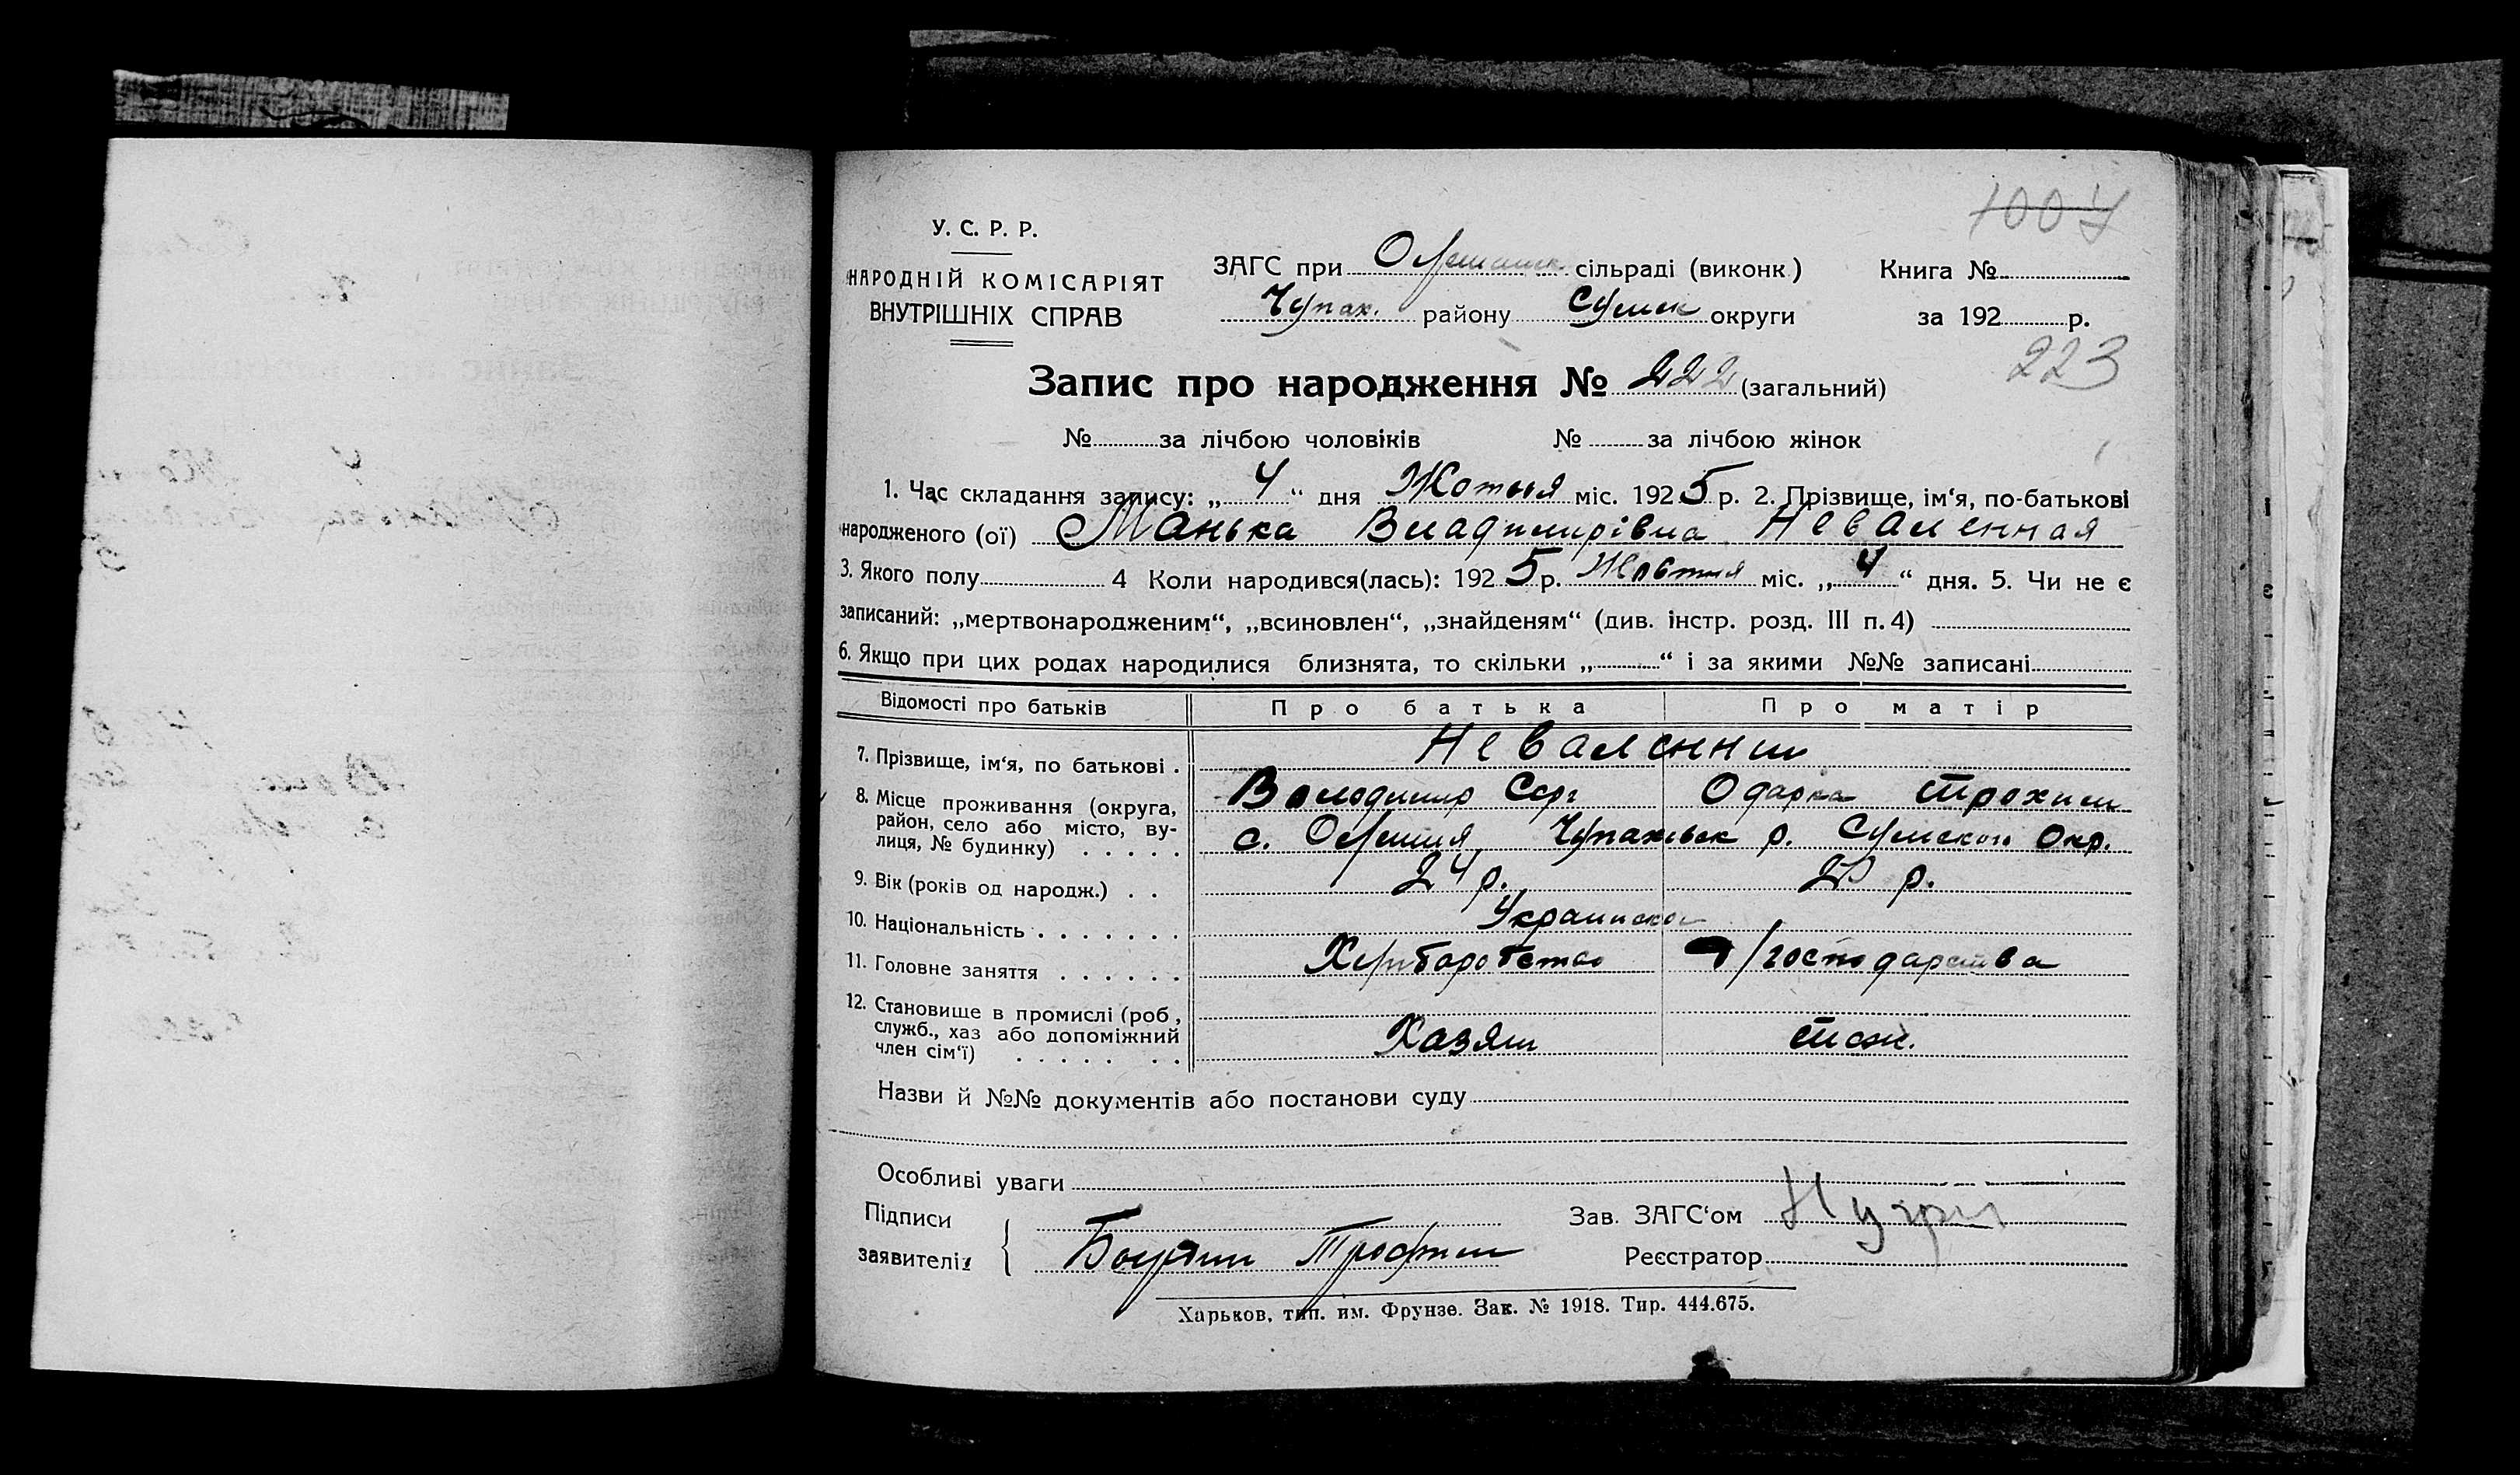 1004
У. С. Р. Р.
НАРОДНІЙ КОМІСАРІЯТ
ВНУТРІШНІХ СПРАВ
ЗАГС при сільраді (виконк.) Книга №
Чупах. району Сумск округи за 192 р.
223
Запис про народження № 222 (загальний)
№ за лічбою чоловіків № за лічбою жінок
1. Час складання запису: „ 4 “ дня Жотня міс. 1925 р. 2. Прізвище, ім‘я, по-батькові
народженого (ої) Манька Владимирівна Неваленная
3. Якого полу 4 Коли народився(лась): 1925 р. Жовтня міс. „ 4 “ дня. 5. Чи не є
записаний: „мертвонародженим“, „всиновлен“, „знайденям“ (див. інстр. розд. III п. 4)
6. Якщо при цих родах народилися близнята, то скільки „ “ і за якими №№ записані
Відомості про батьків Про батька Про матір
7. Прізвище, ім‘я, по батькові . Неваленни
8. Місце проживання (округа, Володимир Серг Одарка Трохим
район, село або місто, ву-
лиця, № будинку) . . . . . с. Олешня, р. Сумской Окр.
9. Вік (років од народж.) . . 24 р. р.
10. Національність . . . . . . . Украинской
11. Головне заняття . . . . . . Хлиборобство /господарства
12. Становище в промислі (роб,
служб., хаз або допоміжний
член сім‘ї) . . . . . . . Хазяин тож.
Назви й №№ документів або постанови суду
Особливі уваги
Підписи Зав. ЗАГС‘ом
заявителів Трофим Реєстратор
Харьков, тип. им. Фрунзе. Зак. № 1918. Тир. 444.675.